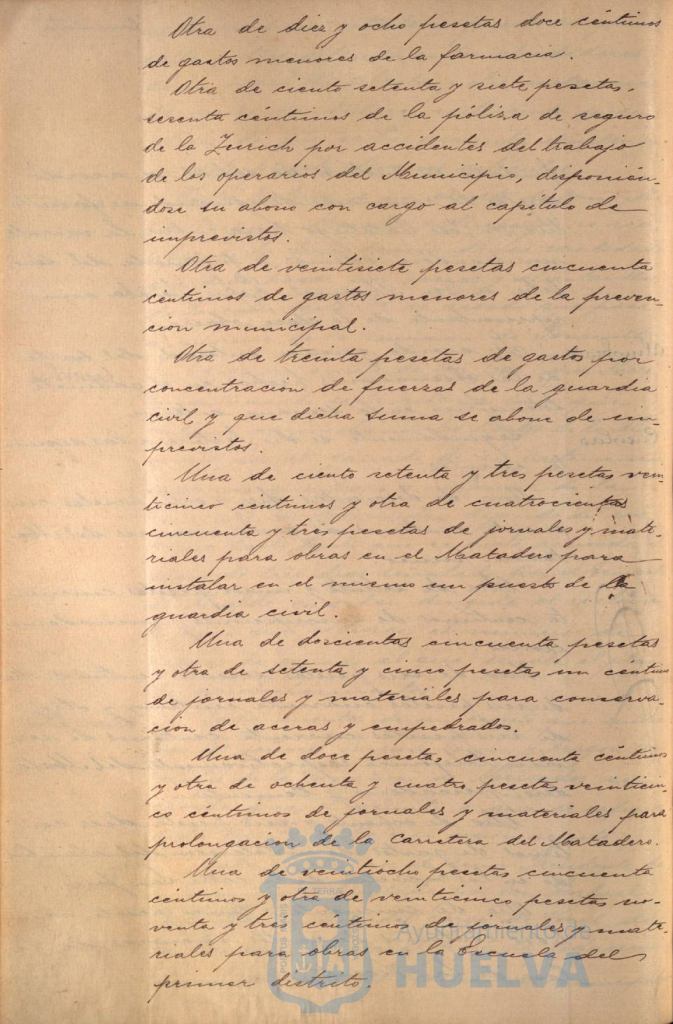 Otra de diez y ocho pesetas doce céntimos
de gastos menores de la farmacia.
Otra de ciento setenta y siete pesetas,
sesenta céntimos de la póliza de seguro
de la Zurich por accidentes del trabajo
de los operarios del Municipio, disponién-
dose su abono con cargo al capítulo de
imprevistos.
Otra de veintisiete pesetas cincuenta
céntimos de gastos menores de la preven-
cion municipal.
Otra de treinta pesetas de gastos por
concentracion de fuerzas de la guardia
civil y que dicha suma se abone de im-
previstos.
Una de ciento setenta y tres pesetas vein-
ticinco céntimos y otra de cuatrocientas
cincuenta y tres pesetas de jornales y mate-
riales para obras en el Matadero para
instalar en el mismo un puesto de la
guardia civil.
Una de doscientas cincuenta pesetas
y otra de setenta y cinco pesetas un céntimo
de jornales y materiales para conserva-
cion de aceras y empedrados.
Una de doce pesetas cincuenta céntimos
y otra de ochenta y cuatro pesetas veinticin-
co céntimos de jornales y materiales para
prolongacion de la Carretera del Matadero.
Una de veintiocho pesetas cincuenta
céntimos y otra de veinticinco pesetas no-
venta y tres céntimos de jornales y mate-
riales para obras en la Escuela del
primer distrito.
Ayuntamiento de
HUELVA